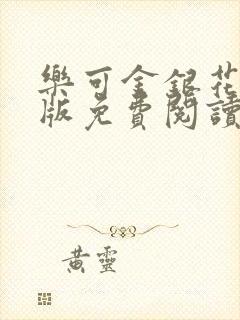 樂可金銀花
版免費閱讀
黃靈